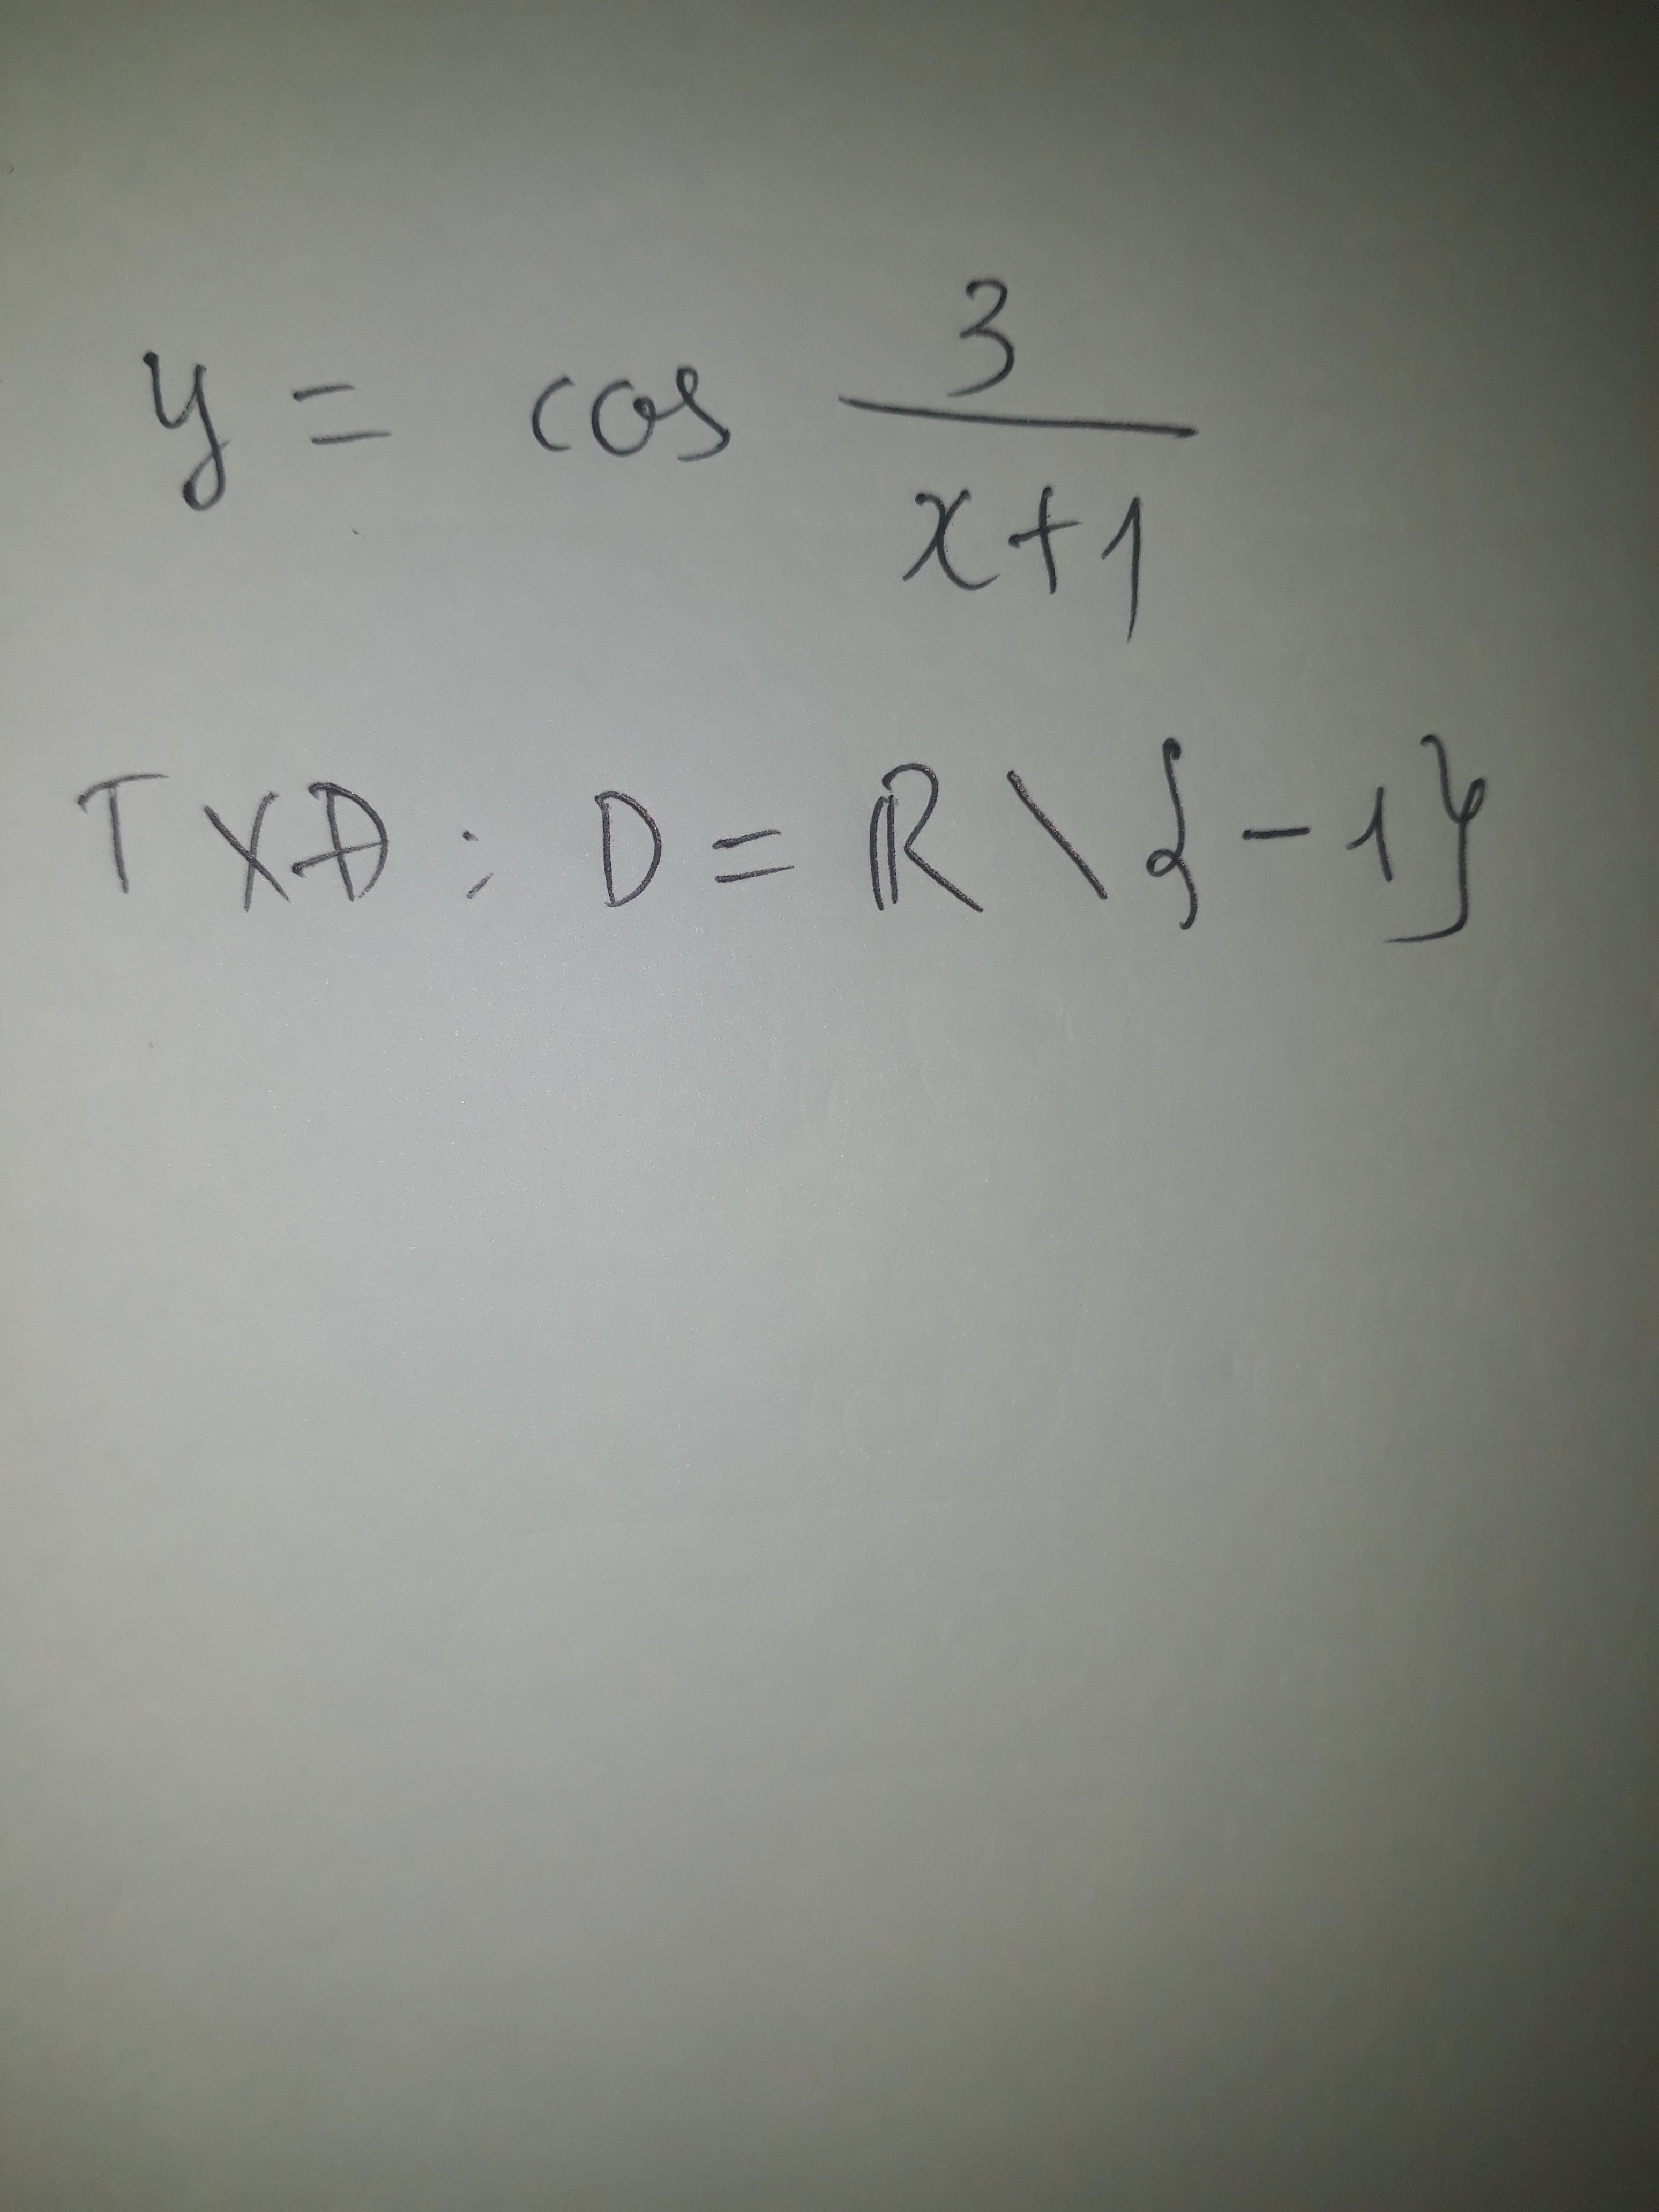 y = cos 3/(x+1)
TXĐ : D = ℝ \ {-1}